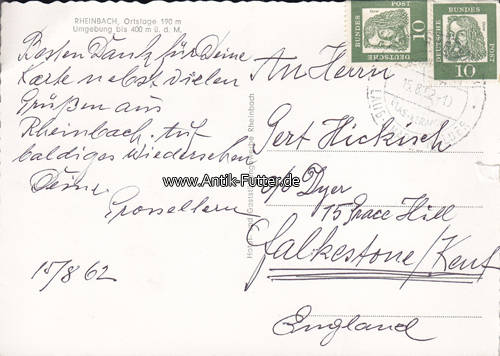 RHEINBACH, Ortslage 190 m
Umgebung bis 400 m ü. d. M.
Besten Dank für Deine
Karte nebst vielen
Grüßen aus
Rheinbach. Auf
baldiges Wiedersehen
Deine
Grosseltern
15/8 62
DEUTSCHE BUNDESPOST
10
DEUTSCHE BUNDESPOST
10
15.8.62
An Herrn
Gert Hickisch
c/o Dyer
15 Grace Hill
Falkestone/Kent
England
Rheinbach
www.Antik-Futter.de